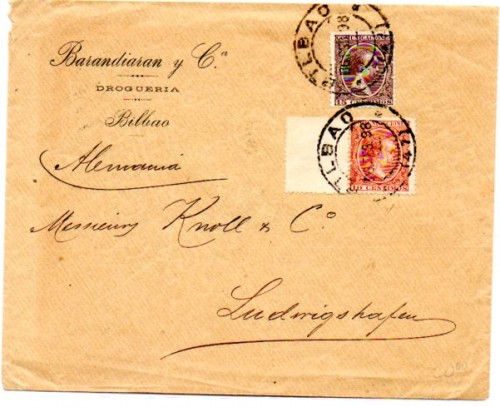 Barandiaran y Cª
DROGUERIA
Bilbao
Alemania
Messieurs Knoll & Cº
Ludwigshafen
BILBAO
98
COMUNICACIONES
15 CENTIMOS
BILBAO
98
10 CENTIMOS